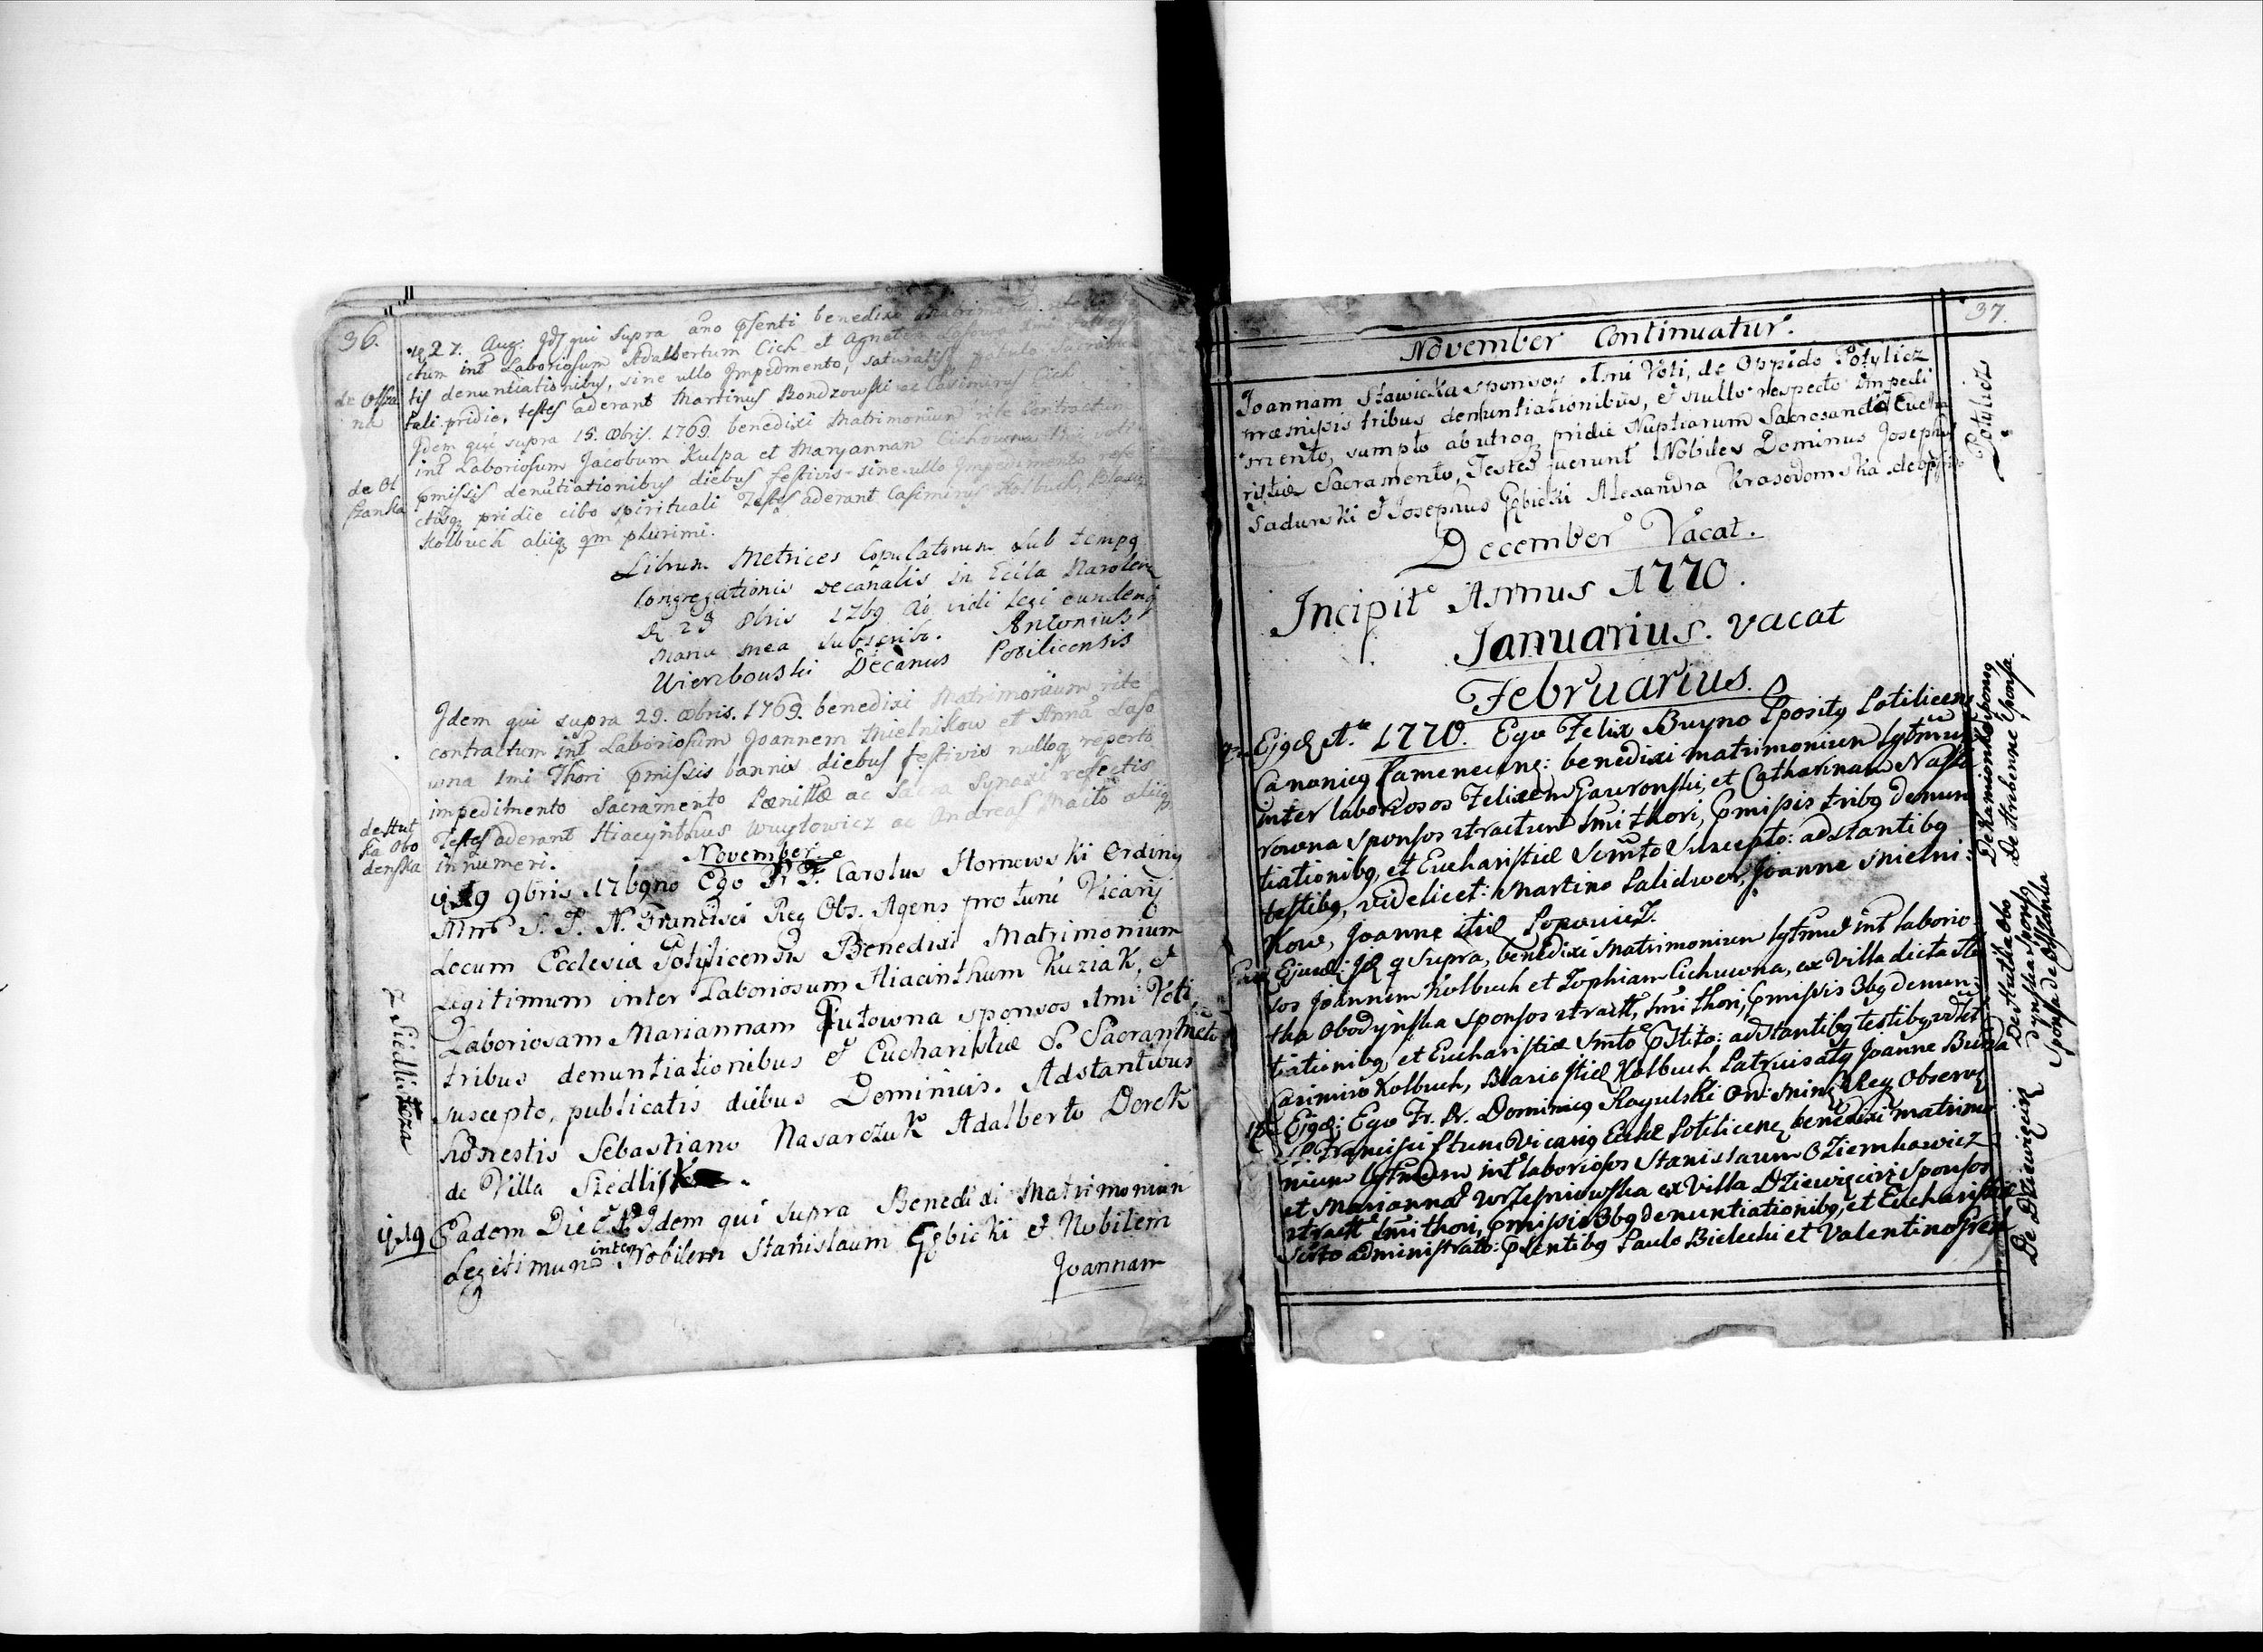 36.
27. Aug: Jdē qui supra año p̄senti benedixi Matrimonium
ctum int̄ Laboriosum Adalbertum Cich et Agnetem
de Olsza
tis denuntiationibus, sine ullo Jmpedimento, saturatisq pabulo
na
tali pridie, testes aderant Martinus Bondzowski ac Casimirus Cich
Jdem qui supra 15. 8bris. 1769 benedixi Matrimonium rite contractum
int̄ Laboriosum Jacobum Kulpa et Maryannam Cichowna
de Ol
p̄missis denūtiationibus diebus festivis sine ullo Jmpedimento refe
szanka
ctisq pridie cibo spirituali Testes aderant Casimirus Kolbuch Blasiq
Kolbuch aliiq qm plurimi.
Librum Metrices Copulatorum sub tempq
Congregationis Decanalis in Ecĉla Narolen
D 23 8bris 1769 Ao vidi legi eundemq
Manu mea subscribo. Antonius
Wierzbouski Decanus Potilicensis
Jdem qui supra 29. 8bris. 1769. benedixi Matrimonium rite
contractum int̄ Laboriosum Joannem Mielnikow et Annā Laso
wna 1mi Thori p̄missis bannis diebus festivis nulloq reperto
impedimento Sacramento Pænittæ ac Sacra Synaxi refectis
de Hut
Testes aderant Hiacynthus Wuytowicz ac Andreas Maito aliiq
ka Obo
innumeri.
denska
November
19 9bris 1769no Ego Pr F. Carolus Hornowski Ordinq
Minr S. P. N. Francisci Reg Obs. Agens pro tunc Vicarij
Locum Ecclesiæ Potylicensis Benedixi Matrimonium
Legitimum inter Laboriosum Hiacinthum Kuziak, et
Laboriosam Mariannam Gutowna sponsos 1mi Voti,
tribus denuntiationibus et Eucharistiæ S. Sacramento
suscepto, publicatis diebus Dominicis. Adstantibus
Honestis Sebastiano Nasarczuk Adalberto Derek
de Villa Siedlisk
z Siedliszcza
19 Eadem Die Jdem qui supra Benedixi Matrimonium
Legitimum inter Nobilem Stanislaum Gębicki et Nobilem
Joannam
37.
November Continuatur.
Joannam Stawicka sponsos 1mi Voti, de Oppido Potylicz
præmissis tribus denuntiationibus, et nullo respecto Impedi
mento, sumpto ab utroq pridie Nuptiarum Sacrosancto Eucha
ristiæ Sacramento, Testes fuerunt Nobiles Dominus Josephus
Sadurski et Josephus Gębicki Alexandra Krasodomska de
Potylicz
December Vacat.
Incipit Annus 1770.
Januarius. Vacat
Februarius.
Ejqd A. 1770. Ego Felix Buyno Ppositq Potilicens
Canonicq Camenecens: benedixi matrimonium lgtmu
inter laboriosos Felixem Gawronski, et Catharinam Nasta
rowna sponsos 9tractum 1mi thori, p̄missis tribq denun
tiationibq, et Eucharistiæ Scm̄to Suscepto: adstantibq
testibq, videlicet: Martino Palidwor, Joanne Mielni
kow, Joanne itid Popowicz.
De Kamionka sponsq
De Hrebenne Sponsa.
Ejusd: Jd q supra, benedixi matrimonium lgtmu int laborio
sos Joannem Kolbuch et Zophiam Cichuwna, ex Villa dicta Hu
tka Obodyńska sponsos 9tractt, 1mi thori, p̄missis 3bq denun
tiationibq, et Eucharistiæ Sm̄to p̄stito: adstantibq testibq, vdlt
Casimiro Kolbuch, Blasio itid Kolbuch Joanne Burda
De Hutka Obo
dynska sponsq
sponsa de Olszanka
Ejqd: Ego Fr. Pr. Dominicq Rogulski Ord: Minq Reg Observ
S. P. Francisci ptunc Vicariq Eccłæ Potilicens benedixi matrimo
nium lgtmum int laboriosos Stanislaum Oziemkawicz
et Mariannā Wrzesniowska ex Villa Dziewięcirz sponsos
9tractt 1mi thori, p̄missis 3bq denuntiationibq, et Eucharistiæ
Scm̄to administrato: p̄sentibq Paulo Bielecki et Valentino
De Dziewięcirz